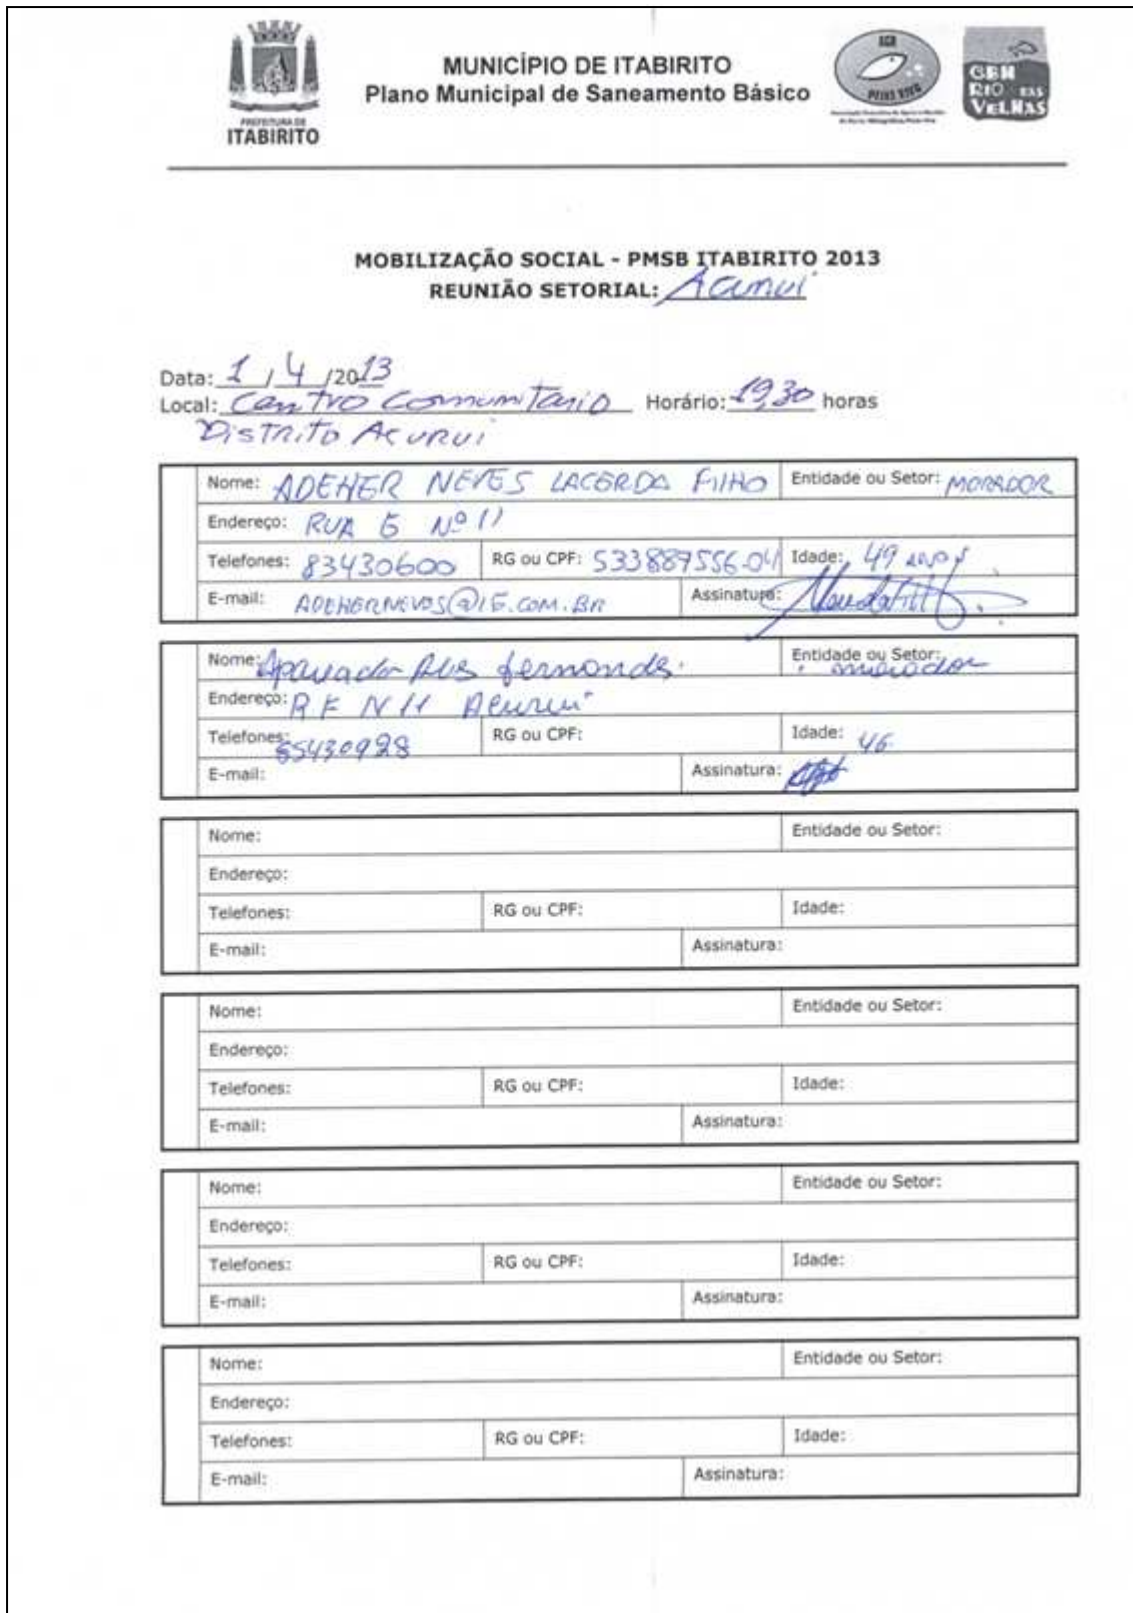 MUNICÍPIO DE ITABIRITO
Plano Municipal de Saneamento Básico
PREFEITURA DE
ITABIRITO
AGB
PEIXE VIVO
CBH
RIO DAS
VELHAS
MOBILIZAÇÃO SOCIAL - PMSB ITABIRITO 2013
REUNIÃO SETORIAL: Acurui
Data: 1 / 4 /2013
Local: Centro Comunitario Horário: 19,30 horas
Distrito Acurui
Nome: ADEHER NEVES LACERDA FILHO Entidade ou Setor: MORADOR
Endereço: RUA Nº 11
Telefones: 83430600 RG ou CPF: 533887556-04 Idade: 49 anos
E-mail: Assinatura:
Nome: Entidade ou Setor: morador
Endereço: R N 11 Acurui
Telefones: RG ou CPF: Idade: 46
E-mail: Assinatura:
Nome: Entidade ou Setor:
Endereço:
Telefones: RG ou CPF: Idade:
E-mail: Assinatura:
Nome: Entidade ou Setor:
Endereço:
Telefones: RG ou CPF: Idade:
E-mail: Assinatura:
Nome: Entidade ou Setor:
Endereço:
Telefones: RG ou CPF: Idade:
E-mail: Assinatura:
Nome: Entidade ou Setor:
Endereço:
Telefones: RG ou CPF: Idade:
E-mail: Assinatura: